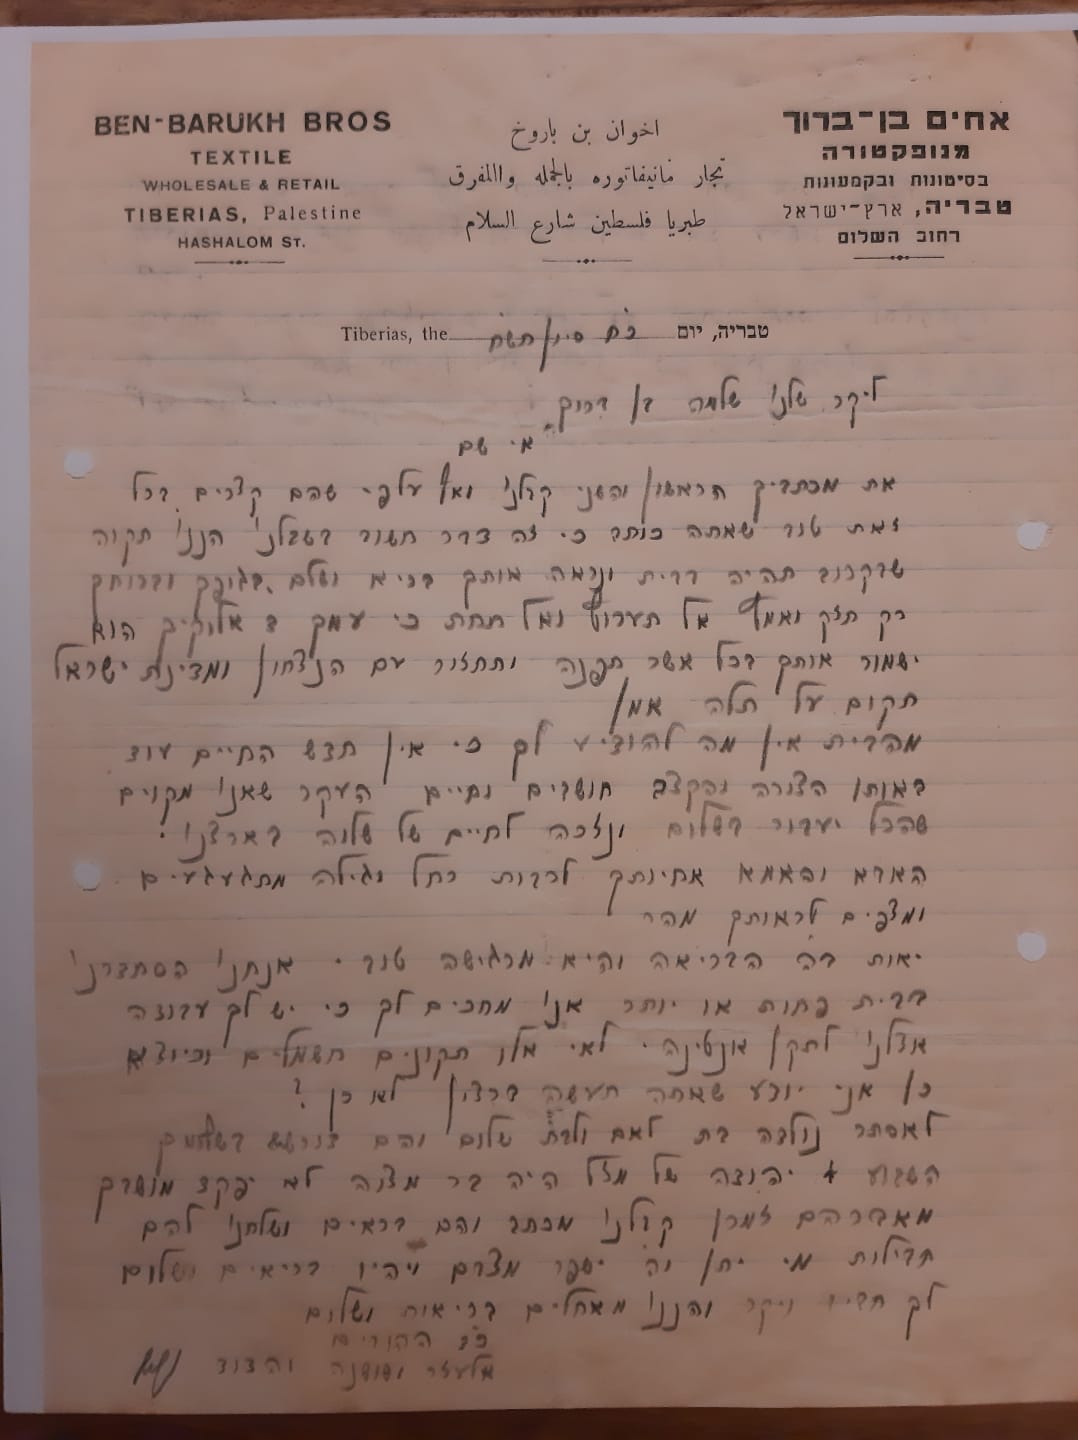 BEN-BARUKH BROS
TEXTILE
WHOLESALE & RETAIL
TIBERIAS, Palestine
HASHALOM ST.
اخوان بن باروخ
تجار مانيفاتوره بالجمله واللمفرق
طبريا فلسطين شارع السلام
אחים בן-ברוך
מנופקטורה
בסיטונות ובקמעונות
טבריה, ארץ-ישראל
רחוב השלום
Tiberias, the כ"ח סיון תש"ח טבריה, יום
ליקר שלנו שלמה בן ברוך
א. שם
את מכתביך הראשון והשני קבלנו ואף על פי שהם קצרים בכל
זאת טוב שאתה כותב כי זה דבר חשוב בשבלנו הננו תקוה
שבקרוב תהיה בבית ונראה אותך בריא ושלם בגופך וברוחך
רק חזק ואמץ אל תערוץ ואל תחת כי עמך ה אלוקיך הוא
ישמור אותך בכל אשר תפנה ותחזור עם הנצחון ומדינת ישראל
תקום על תלה אמן
מהבית אין מה להודיע לך כי אין חדש החיים עוד
באותו הצורה והקצב חושבים וחיים העקר שאנו מקוים
שהכל יעבור בשלום ונזכה לחיים של שלוה בארצנו.
האבא והאמא אחיותך לרבות רחל וגילה מתגעגעים
ומצפים לראותך מהר
יאות בה הבריאה והיא מרגישה טוב. אנחנו הסתדרנו
בבית פחות או יותר אנו מחכים לך כי יש לך עבודה
אצלנו לתקן אנטינה. לאי אלו תקונים חשמלים וכיוצא
כן אני יודע שאתה תעשה ברצון לא כן?
לאסתר נולדה בת לאם ולבת שלום והם
השבוע יהודה של מזל היה בר מצוה לא יפקד מושבך
מאברהם זמרן קבלנו מכתב והם בריאים ושלחנו להם
חבילות מי יתן וה ישפר מצבם ויהיו בריאים ושלום
לך חביב ויקר והננו מאחלים בריאות ושלום
כ"ד ההורים
אלעזר ושושנה והדוד